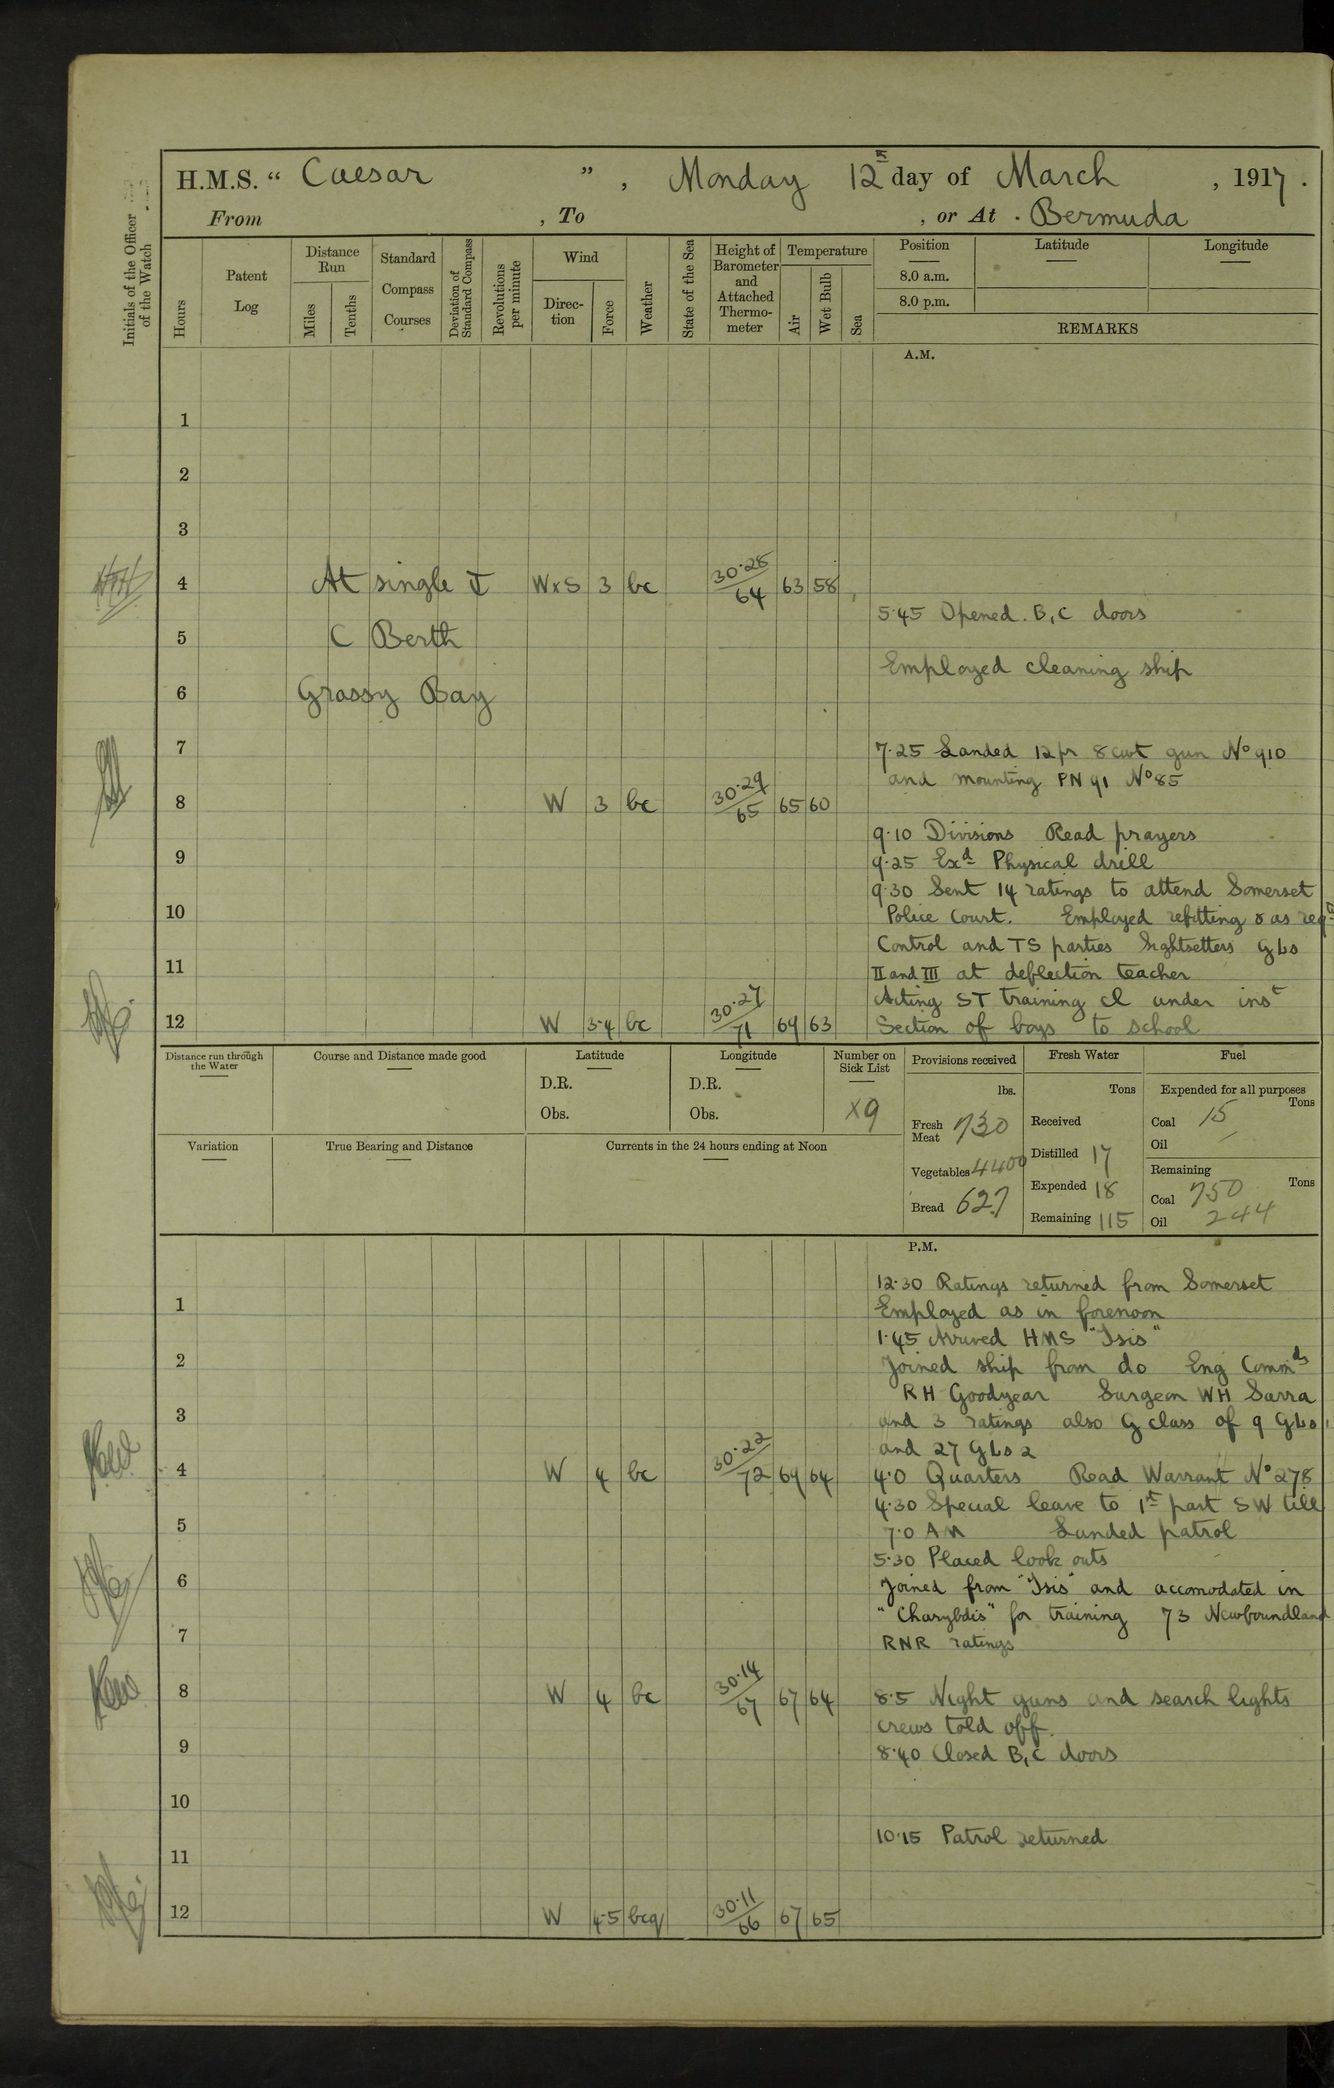 H.M.S. “ Caesar ” , Monday 12th day of March , 1917 .
From , To , or At . Bermuda
Initials of the Officer of the Watch
Hours
Patent Log
Distance Run
Miles
Tenths
Standard Compass Courses
Deviation of Standard Compass
Revolutions per minute
Wind
Direc-tion
Force
Weather
State of the Sea
Height of Barometer and Attached Thermo-meter
Temperature
Air
Wet Bulb
Sea
Position
Latitude
Longitude
8.0 a.m.
8.0 p.m.
REMARKS
A.M.
1
2
3
4 At single WxS 3 bc 30.28 64 63 58
5.45 Opened. B, C doors
5 C Berth
Employed cleaning ship
6 Grassy Bay
7
7.25 Landed 12pr 8cwt gun No 910
and mounting PN 91 No 85
8 W 3 bc 30.29 65 65 60
9.10 Divisions Read prayers
9
9.25 Exd Physical drill
9.30 Sent 14 ratings to attend Somerset
10
Police Court. Employed refitting & as reqd
Control and TS parties Sightsetters GLs
11
II and III at deflection teacher
Acting ST training cl under inst
12 W 3-4 bc 30.27 71 69 63
Section of boys to school
Distance run through the Water
Course and Distance made good
Latitude
D.R.
Obs.
Longitude
D.R.
Obs.
Number on Sick List
x9
Provisions received
lbs.
Fresh Meat 730
Vegetables 4400
Bread 627
Fresh Water
Tons
Received
Distilled 17
Expended 18
Remaining 115
Fuel
Expended for all purposes
Tons
Coal 15
Oil /
Remaining
Tons
Coal 750
Oil 244
Variation
True Bearing and Distance
Currents in the 24 hours ending at Noon
P.M.
12.30 Ratings returned from Somerset
1
Employed as in forenoon
1.45 Arrived HMS "Isis"
2
Joined ship from do Eng Commdr
RH Goodyear Surgeon WH Sarra
3
and 3 ratings also G class of 9 GLs 1
and 27 GLs 2
4 W 4 bc 30.22 72 69 64
4.0 Quarters Read Warrant No 278
4.30 Special leave to 1st part SW till
5
7.0 AM Landed patrol
5.30 Placed look outs
6
Joined from "Isis" and accomodated in
"Charybdis" for training 73 Newfoundland
7
RNR ratings
8 W 4 bc 30.14 67 67 64
8.5 Night guns and search lights
crews told off.
9
8.40 Closed B, C doors
10
10.15 Patrol returned
11
12 W 4-5 bcq 30.11 66 67 65